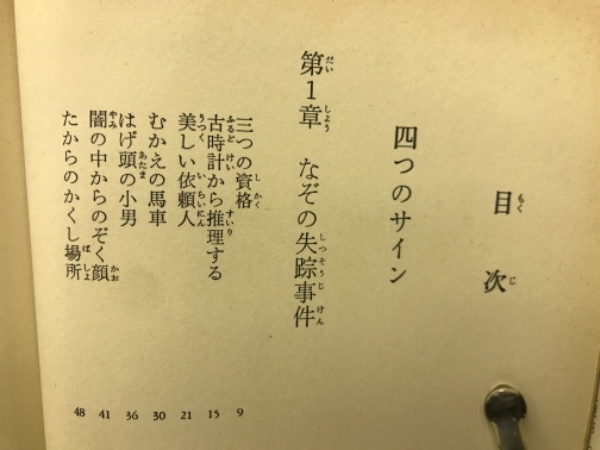 目次
四つのサイン
第1章 なぞの失踪事件
三つの資格 9
古時計から推理する 15
美しい依頼人 21
むかえの馬車 30
はげ頭の小男 36
闇の中からのぞく顔 41
たからのかくし場所 48